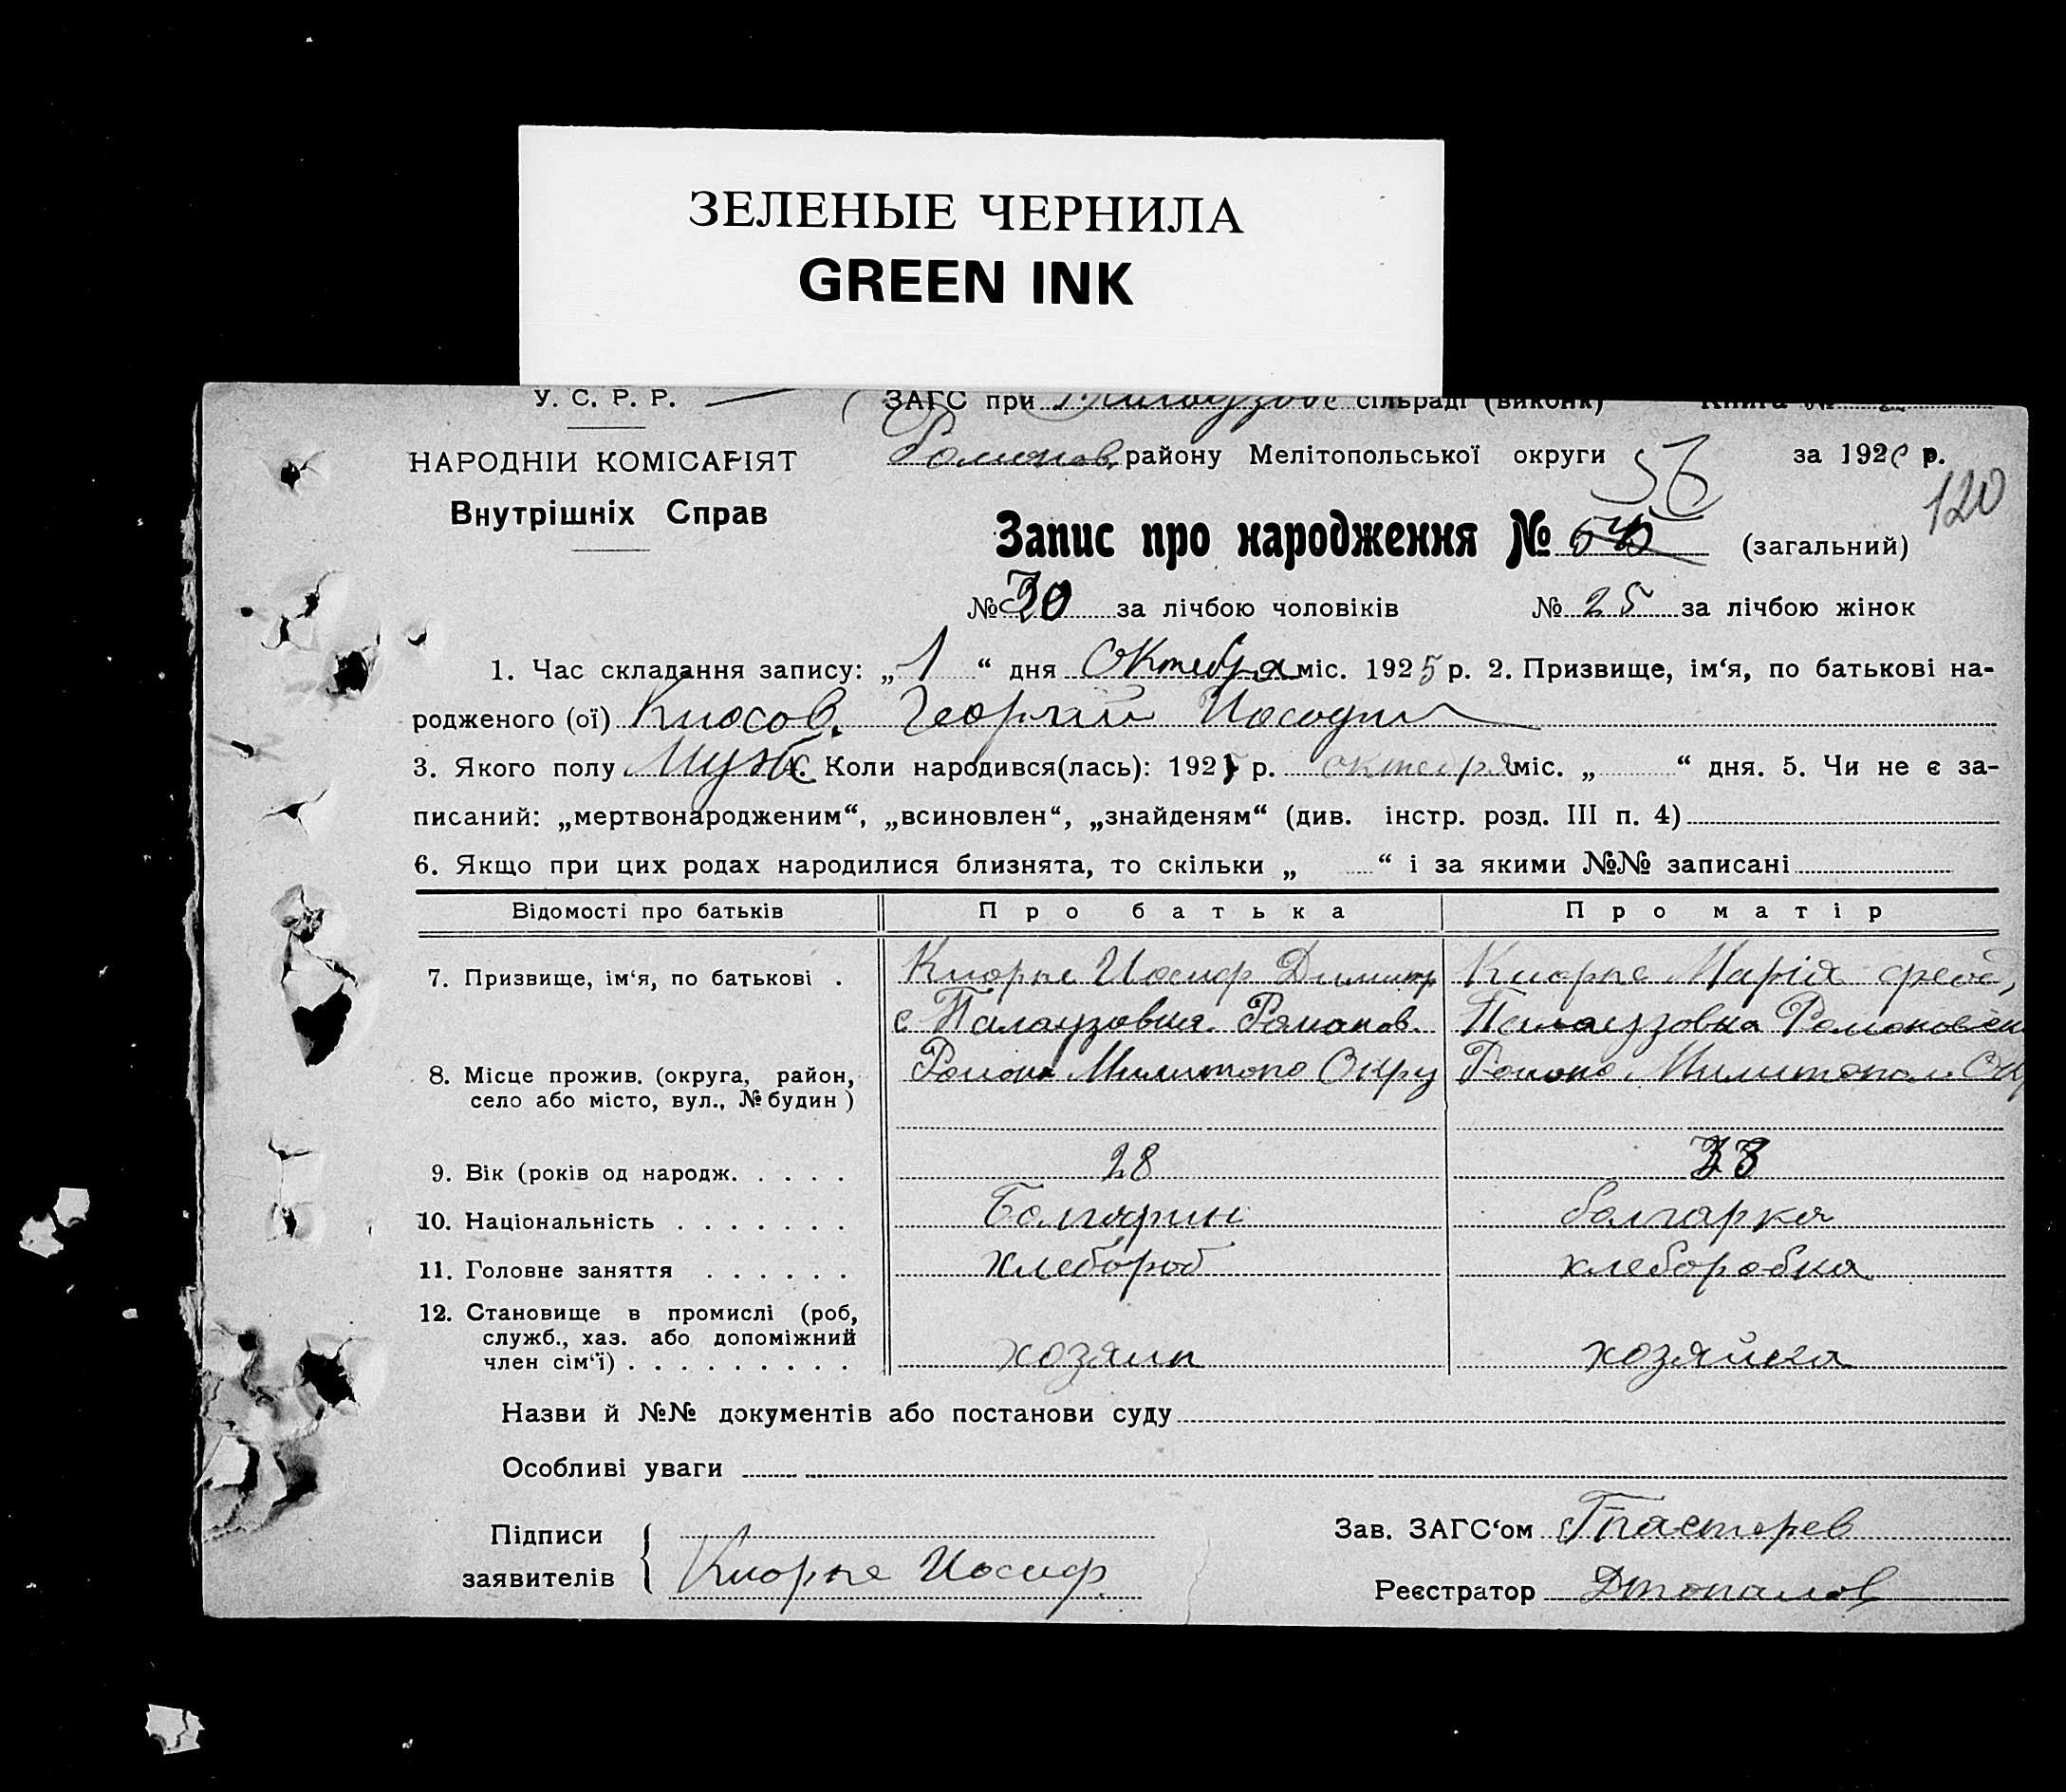 ЗЕЛЕНЫЕ ЧЕРНИЛА
GREEN INK
У. С. Р. Р. ЗАГС при сільраді (виконк) Книга №
НАРОДНІЙ КОМІСАРІЯТ Романов. району Мелітопольської округи 56 за 192 р.
Внутрішніх Справ 120
Запис про народження № (загальний)
№ 30 за лічбою чоловіків № 25 за лічбою жінок
1. Час складання запису: „ 1 “ дня Октебря міс. 1925 р. 2. Призвище, ім‘я, по батькові на-
родженого (ої) Георгій
3. Якого полу Муж 4. Коли народився(лась): 192 р. октебря міс. „ “ дня. 5. Чи не є за-
писаний: „мертвонародженим“, „всиновлен“, „знайденям“ (див. інстр. розд. III п. 4)
6. Якщо при цих родах народилися близнята, то скільки „ “ і за якими №№ записані
Відомості про батьків Про батька Про матір
7. Призвище, ім‘я, по батькові . Киорпе Иосиф Димитр Киорпе Марія феод,
с Палаузовка Романов. Палаузовка
8. Місце прожив. (округа, район, село або місто, вул., № будин) Району Окру
9. Вік (років од народж. . . . . 28 33
10. Національність . . . . . . . Болгарин болгарка
11. Головне заняття . . . . . . хлебороб хлеборобка
12. Становище в промислі (роб,
служб., хаз. або допоміжний
член сім‘ї) . . . . . . . . . хозяин хозяйка
Назви й №№ документів або постанови суду
Особливі уваги
Підписи Зав. ЗАГС‘ом
заявителів Киорпе Иосиф Реєстратор Дтопалов